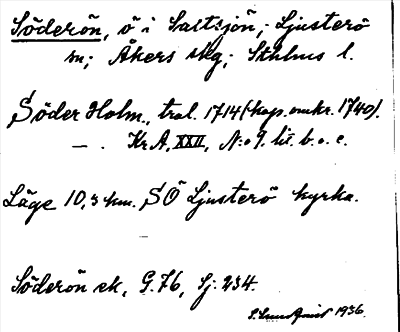 Söderön, ö i Saltsjön, Ljusterö
sn; Åkers skg; Sthlms l.
Söder Holm, tral. 1714 (kop. omkr. 1740).
— . Kr A, XXII, N:o 9. lit. b. o. c.
Läge 10,3 km. SÖ Ljusterö kyrka.
Söderön ek, G. 76, Sj: 234.
S. Lundqvist 1936.